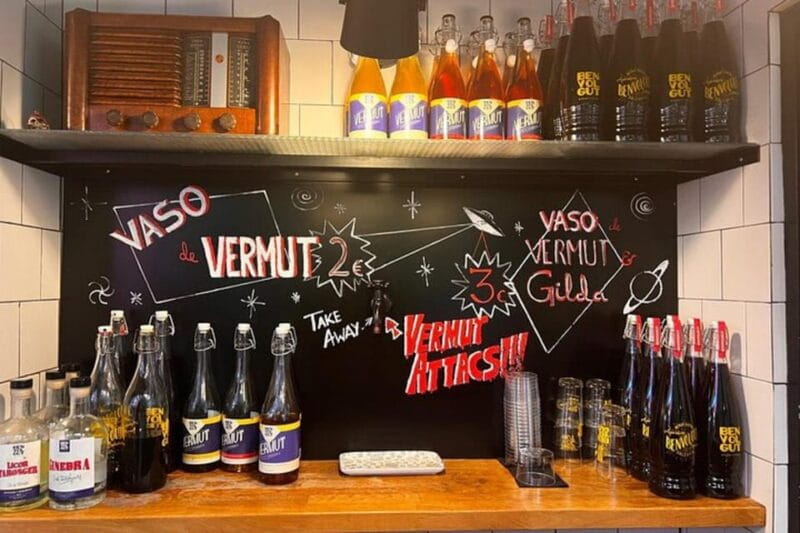 VERMUT
VERMUT
VERMUT
VERMUT
VERMUT
BEN
VOL
GUT
BENVOLGUT
BEN
VOL
GUT
BENVOLGUT
VASO
de VERMUT 2€
VASO de
VERMUT &
Gilda
3€
TAKE
AWAY
VERMUT
ATTACS!!!
BEN
VOL
GUT
VERMUT
VERMUT
VERMUT
LICOR
TARONGER
GINEBRA
BENVOLGUT
BEN
VOL
GUT